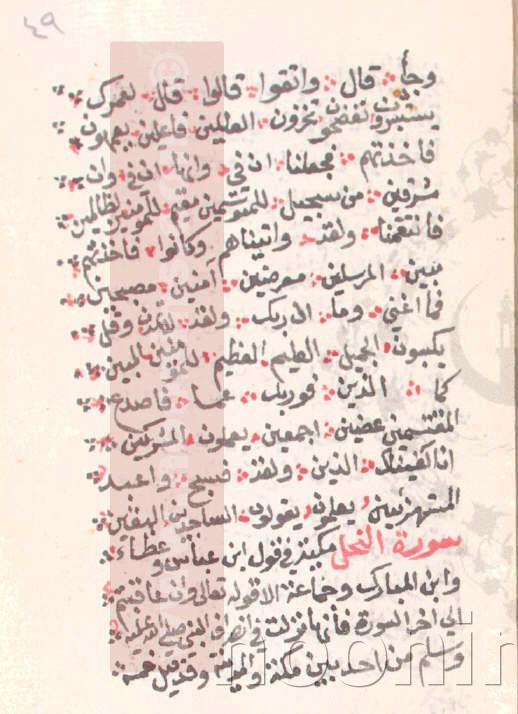 ٤٩
وجأ قال واتقوا قالوا قال لعمرك
يستبشرون تفضحون تخزون العالمين فاعلين يعمهون
فاخذتهم فجعلنا ان في وانها ان في وان
مشرقين من سجيل للمتوسمين مقيم للمؤمنين لظالمين
فانتقمنا ولقد واتيناهم وكانوا فاخذتهم
مبين المرسلين معرضين آمنين مصبحين
فما اغني وما ان ربك ولقد لا تمدن وقل
يكسبون الجميل العليم العظيم للمؤمنين المبين
كما الذين فوربك عما فاصدع
المقتسمين عضين اجمعين يعملون المشركين
انا كفيناك الذين ولقد فسبح واعبد
المستهزئين يعلمون يقولون الساجدين اليقين
سورة النحل مكية في قول ابن عباس وعطاء
وابن المبارك وجماعة الا قوله تعالى وان عاقبتم
الي اخر السورة فانها نزلت في انصراف النبي صلي الله عليه
وسلم من احد بين مكة والمدينة وقد قيل خمسة